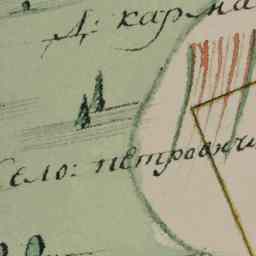 Д: карма
Село: петровки